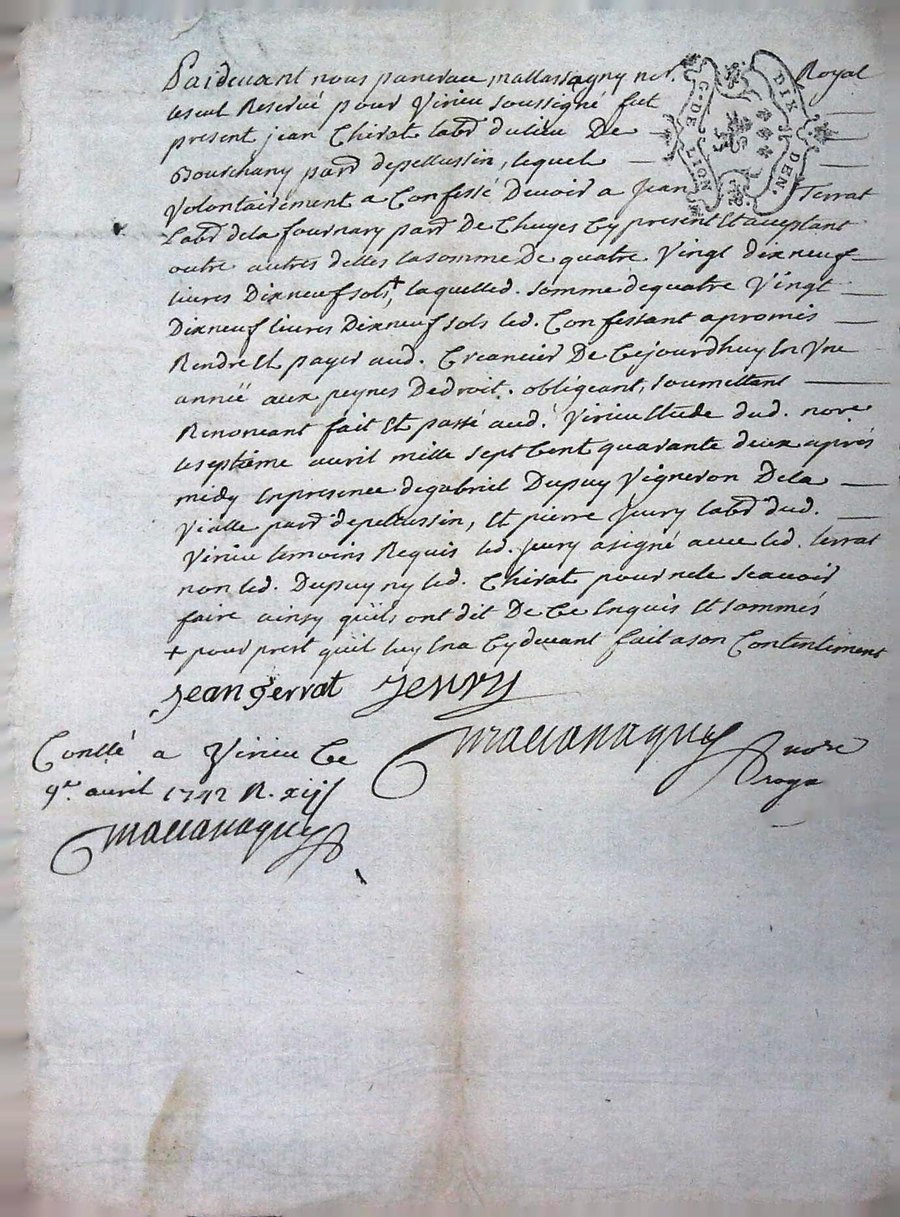 Pardevant nous pancrace mallassagny nore. Royal
seul Reservé pour Virieu soussigné fut
present jean Chirat labr. du lieu De
Bourchany parr. de pellussin, lequel
Volontairement a Confessé Devoir a Jean Terrat
Labr. de la fournary parr. de Chuyes Cy present Et acceptant
outre autres debtes la somme De quatre Vingt dix neuf
livres Dix neuf sols,+ laquelled. somme de quatre Vingt
Dix neuf livres Dix neuf sols led. Confessant a promis
Rendre Et payer aud. Creancier De Cejourdhuy En Vne
année aux peynes De droit. obligeant, soumettant
Renonceant fait Et passé aud. Virieu Etude dud. nore
le septieme avril mille sept Cent quarante deux aprés
midy En presence de gabriel Dupuy Vigneron De la
Vialle parr. de pellussin, Et pierre Jury labr. dud.
Virieu temoins Requis led. jury a signé avec led. terrat
non led. Dupuy ny led. Chirat pour ne le scavoir
faire ainsy quils ont dit De Ce Enquis Et sommés
+ pour prest quil luy En a Cy devant fait a son Contentement
Jean Ferrat Jeury
nore
Royal
Conllé a Virieu Ce
9e. avril 1742 R. xij s
G. DE LION
DIX DEN.